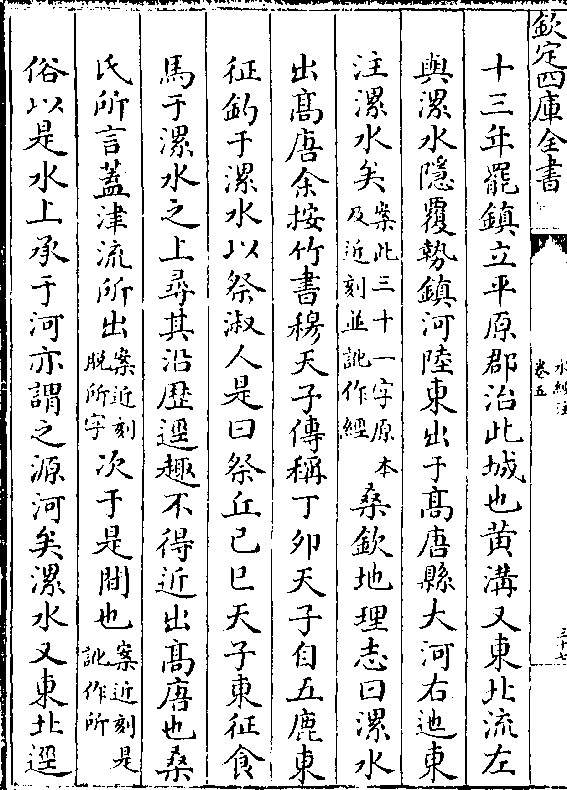 欽定四庫全書
水經注
卷五
三十七
十三年罷鎮立平原郡治此城也黄溝又東北流左
與漯水隱覆勢鎮河陸東出于髙唐縣大河右迆東
注漯水矣案此三十一字原本及近刻並訛作經桑欽地理志曰漯水
出髙唐余按竹書穆天子傳稱丁卯天子自五鹿東
征釣于漯水以祭淑人是曰祭丘己巳天子東征食
馬于漯水之上尋其沿歴逕趣不得近出髙唐也桑
氏所言蓋津流所出案近刻脫所字次于是間也案近刻是訛作所
俗以是水上承于河亦謂之源河矣漯水又東北逕